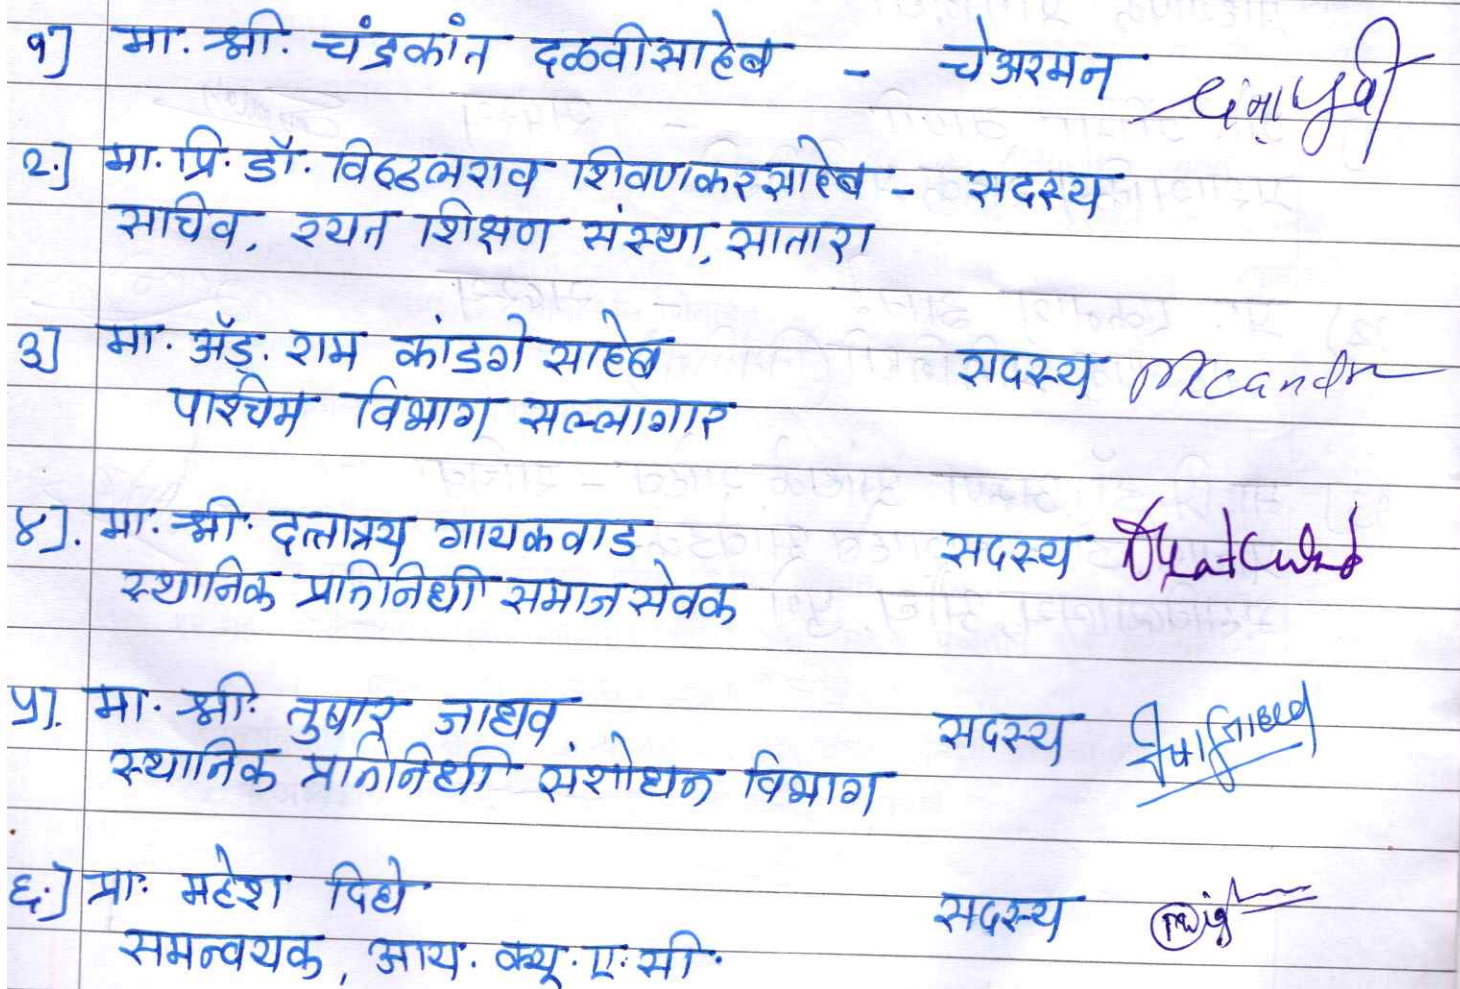 १] मा. श्री. चंद्रकांत दळवीसाहेब - चेअरमन
२.] मा. प्रि. डॉ. विठ्ठलराव शिवणकरसाहेब - सदस्य
सचिव, रयत शिक्षण संस्था, सातारा
३] मा. अ‍ॅड. राम कांडगे साहेब सदस्य
पश्चिम विभाग सल्लागार
४]. मा. श्री. दत्तात्रय गायकवाड सदस्य
स्थानिक प्रतिनिधी समाजसेवक
५]. मा. श्री. तुषार जाधव सदस्य
स्थानिक प्रतिनिधी संशोधन विभाग
६.] प्रा. महेश दिघे सदस्य
समन्वयक, आय. क्यू. ए. सी.